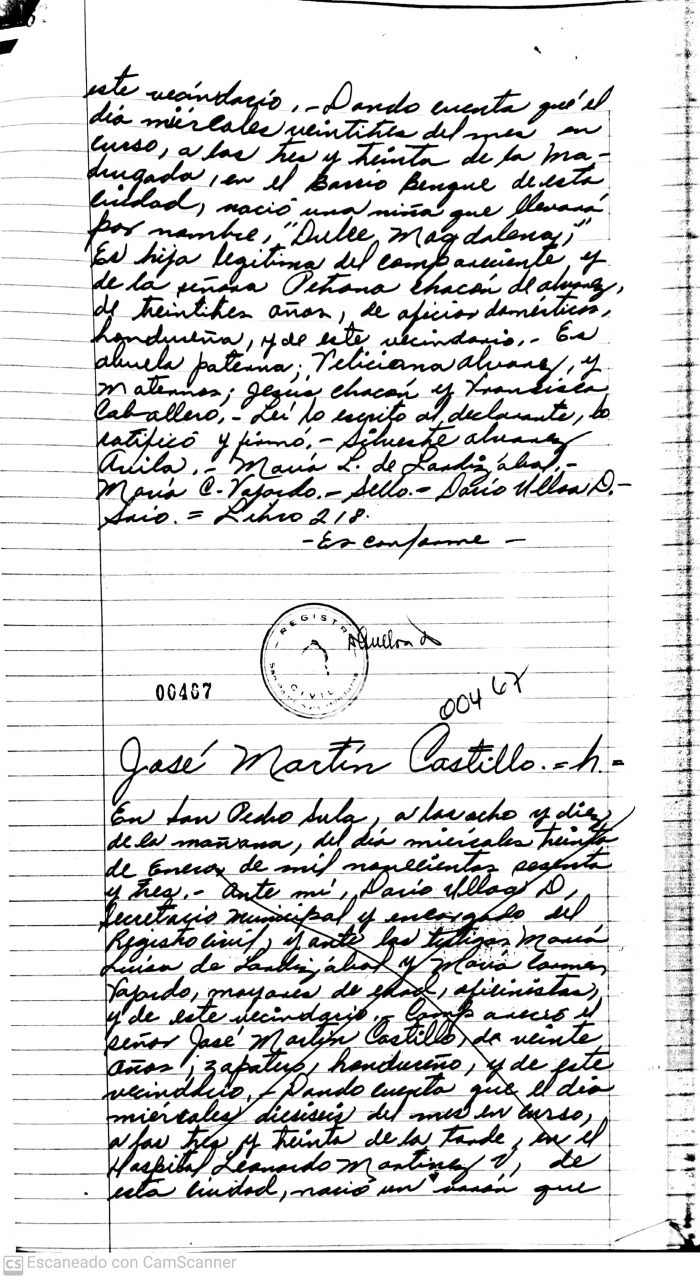 este vecindario.- Dando cuenta qué el
día miércoles veintitres del mes en
curso, a las tres y treinta de la ma-
drugada, en el Barrio Bengue de esta
ciudad, nació una niña que llevará
por nombre, "Dulce Magdalena,"
Es hija legitima del compareciente y
de la señora Petrona Chacón de Alvarez,
de treintitres años, de oficios domésticos,
hondureña, y de este vecindario.- Es
abuela paterna; Feliciana Alvarez, y
Maternos; Jesús Chacón y Francisca
Caballero.- Leí lo escrito al declarante, lo
ratificó y firmó.- Silvestre Alvarez
Avila.- María L. de Landizábal.-
María C. Fajardo.- Sello.- Darío Ulloa D.-
Srio.= Libro 218.
-Es conforme-
REGISTRO
CIVIL
00467
00467
José Martín Castillo.=h.=
En San Pedro Sula, a las ocho y diez
de la mañana, del día miércoles treinta
de Enero, de mil novecientos sesenta
y tres.- Ante mí, Darío Ulloa D,
Secretario Municipal y encargado del
Registro civil, y ante los testigos María
Luisa de Landizábal y María Carmen
Fajardo, mayores de edad, oficinistas,
y de este vecindario.- Compareció el
señor José Martín Castillo, de veinte
años, zapatero, hondureño, y de este
vecindario.- Dando cuenta que el día
miércoles dieciseis del mes en curso,
a las tres y treinta de la tarde, en el
Hospital Leonardo Martinez V, de
esta ciudad, nació un varón que
CS Escaneado con CamScanner